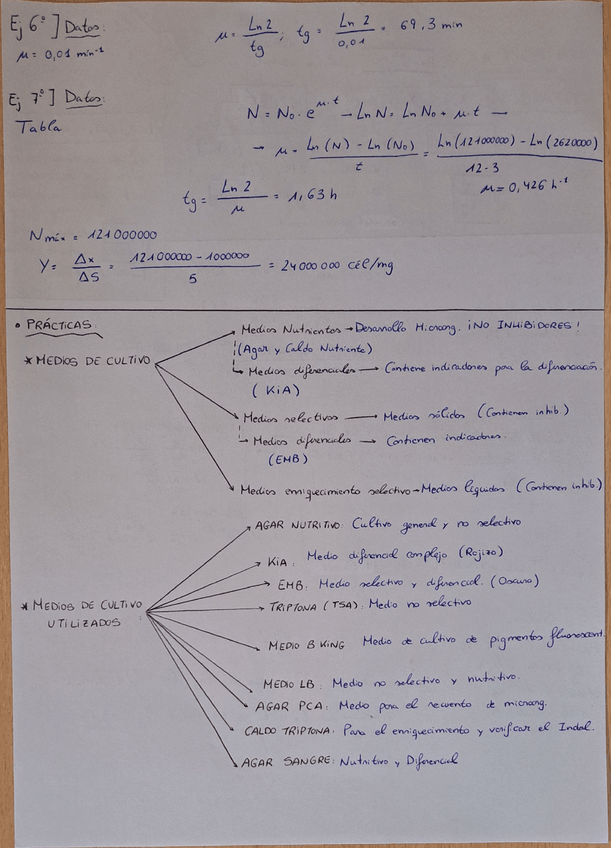 Ej 6º] Datos:
μ = 0,01 min⁻¹
μ = Ln 2 / tg ; tg = Ln 2 / 0,01 = 69,3 min
Ej 7º] Datos:
Tabla
N = N₀ · e^μ·t → Ln N = Ln N₀ + μ·t →
→ μ = Ln (N) - Ln (N₀) / t = Ln (121000000) - Ln (2620000) / 12-3
μ = 0,426 h⁻¹
tg = Ln 2 / μ = 1,63 h
Nmáx = 121000000
Y = Δx / ΔS = 121000000 - 1000000 / 5 = 24000000 cél/mg
• PRÁCTICAS
* MEDIOS DE CULTIVO
Medios Nutrientes → Desarrollo Microorg. ¡NO INHIBIDORES!
(Agar y Caldo Nutriente)
Medios diferenciales → Contiene indicadores para la diferenciación.
(KiA)
Medios selectivos → Medios sólidos (Contienen inhib)
Medios diferenciales → Contienen indicadores.
(EMB)
Medios enriquecimiento selectivo → Medios líquidos (Contienen inhib.)
* MEDIOS DE CULTIVO
UTILIZADOS
AGAR NUTRITIVO: Cultivo general y no selectivo
KiA: Medio diferencial complejo (Rojizo)
EMB: Medio selectivo y diferencial. (Oscuro)
TRIPTONA (TSA): Medio no selectivo
MEDIO B KING Medio de cultivo de pigmentos fluorescent.
MEDIO LB: Medio no selectivo y nutritivo.
AGAR PCA: Medio para el recuento de microorg.
CALDO TRIPTONA: Para el enriquecimiento y verificar el Indol.
AGAR SANGRE: Nutritivo y Diferencial